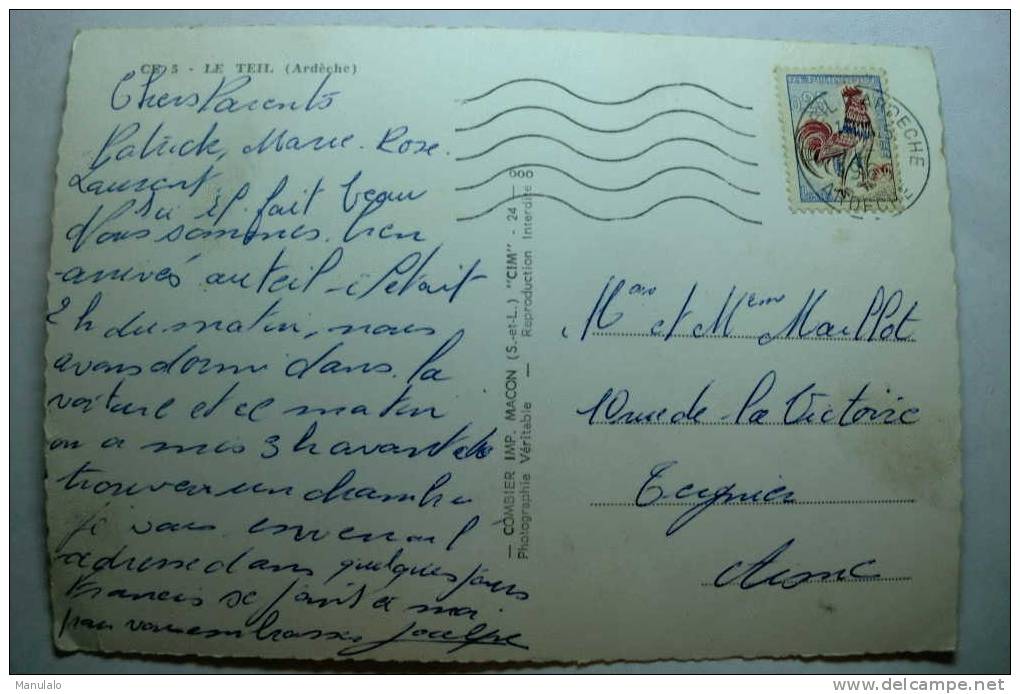 CE 5 - LE TEIL (Ardèche)
Chers Parents
Patrick, Marie-Rose
Laurent
Ici il fait beau
Nous sommes bien
arrivés au teil - il était
2 h du matin, nous
avons dormi dans la
voiture et ce matin
on a mis 3 h avant de
trouver un chambre
je vous enverrai l
adresse dans quelques jours
Francis se joint à moi
pour vous embrasser
— COMBIER IMP. MACON (S.-et-L.) "CIM" - 24 — 000
Photographie Véritable — Reproduction Interdite
ARDECHE
ARDECHE
Mr et Mme Maillot
10 rue de la Victoire
Tergnier
Aisne
Manulalo
delcampe.net